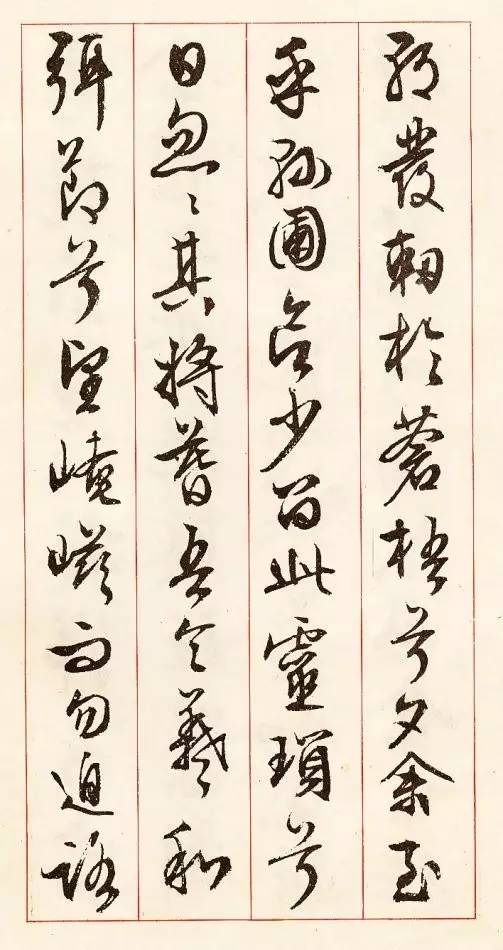 朝發軔於蒼梧兮夕余至
乎縣圃欲少留此靈瑣兮
日忽〻其將暮吾令羲和
弭節兮望崦嵫而勿迫路